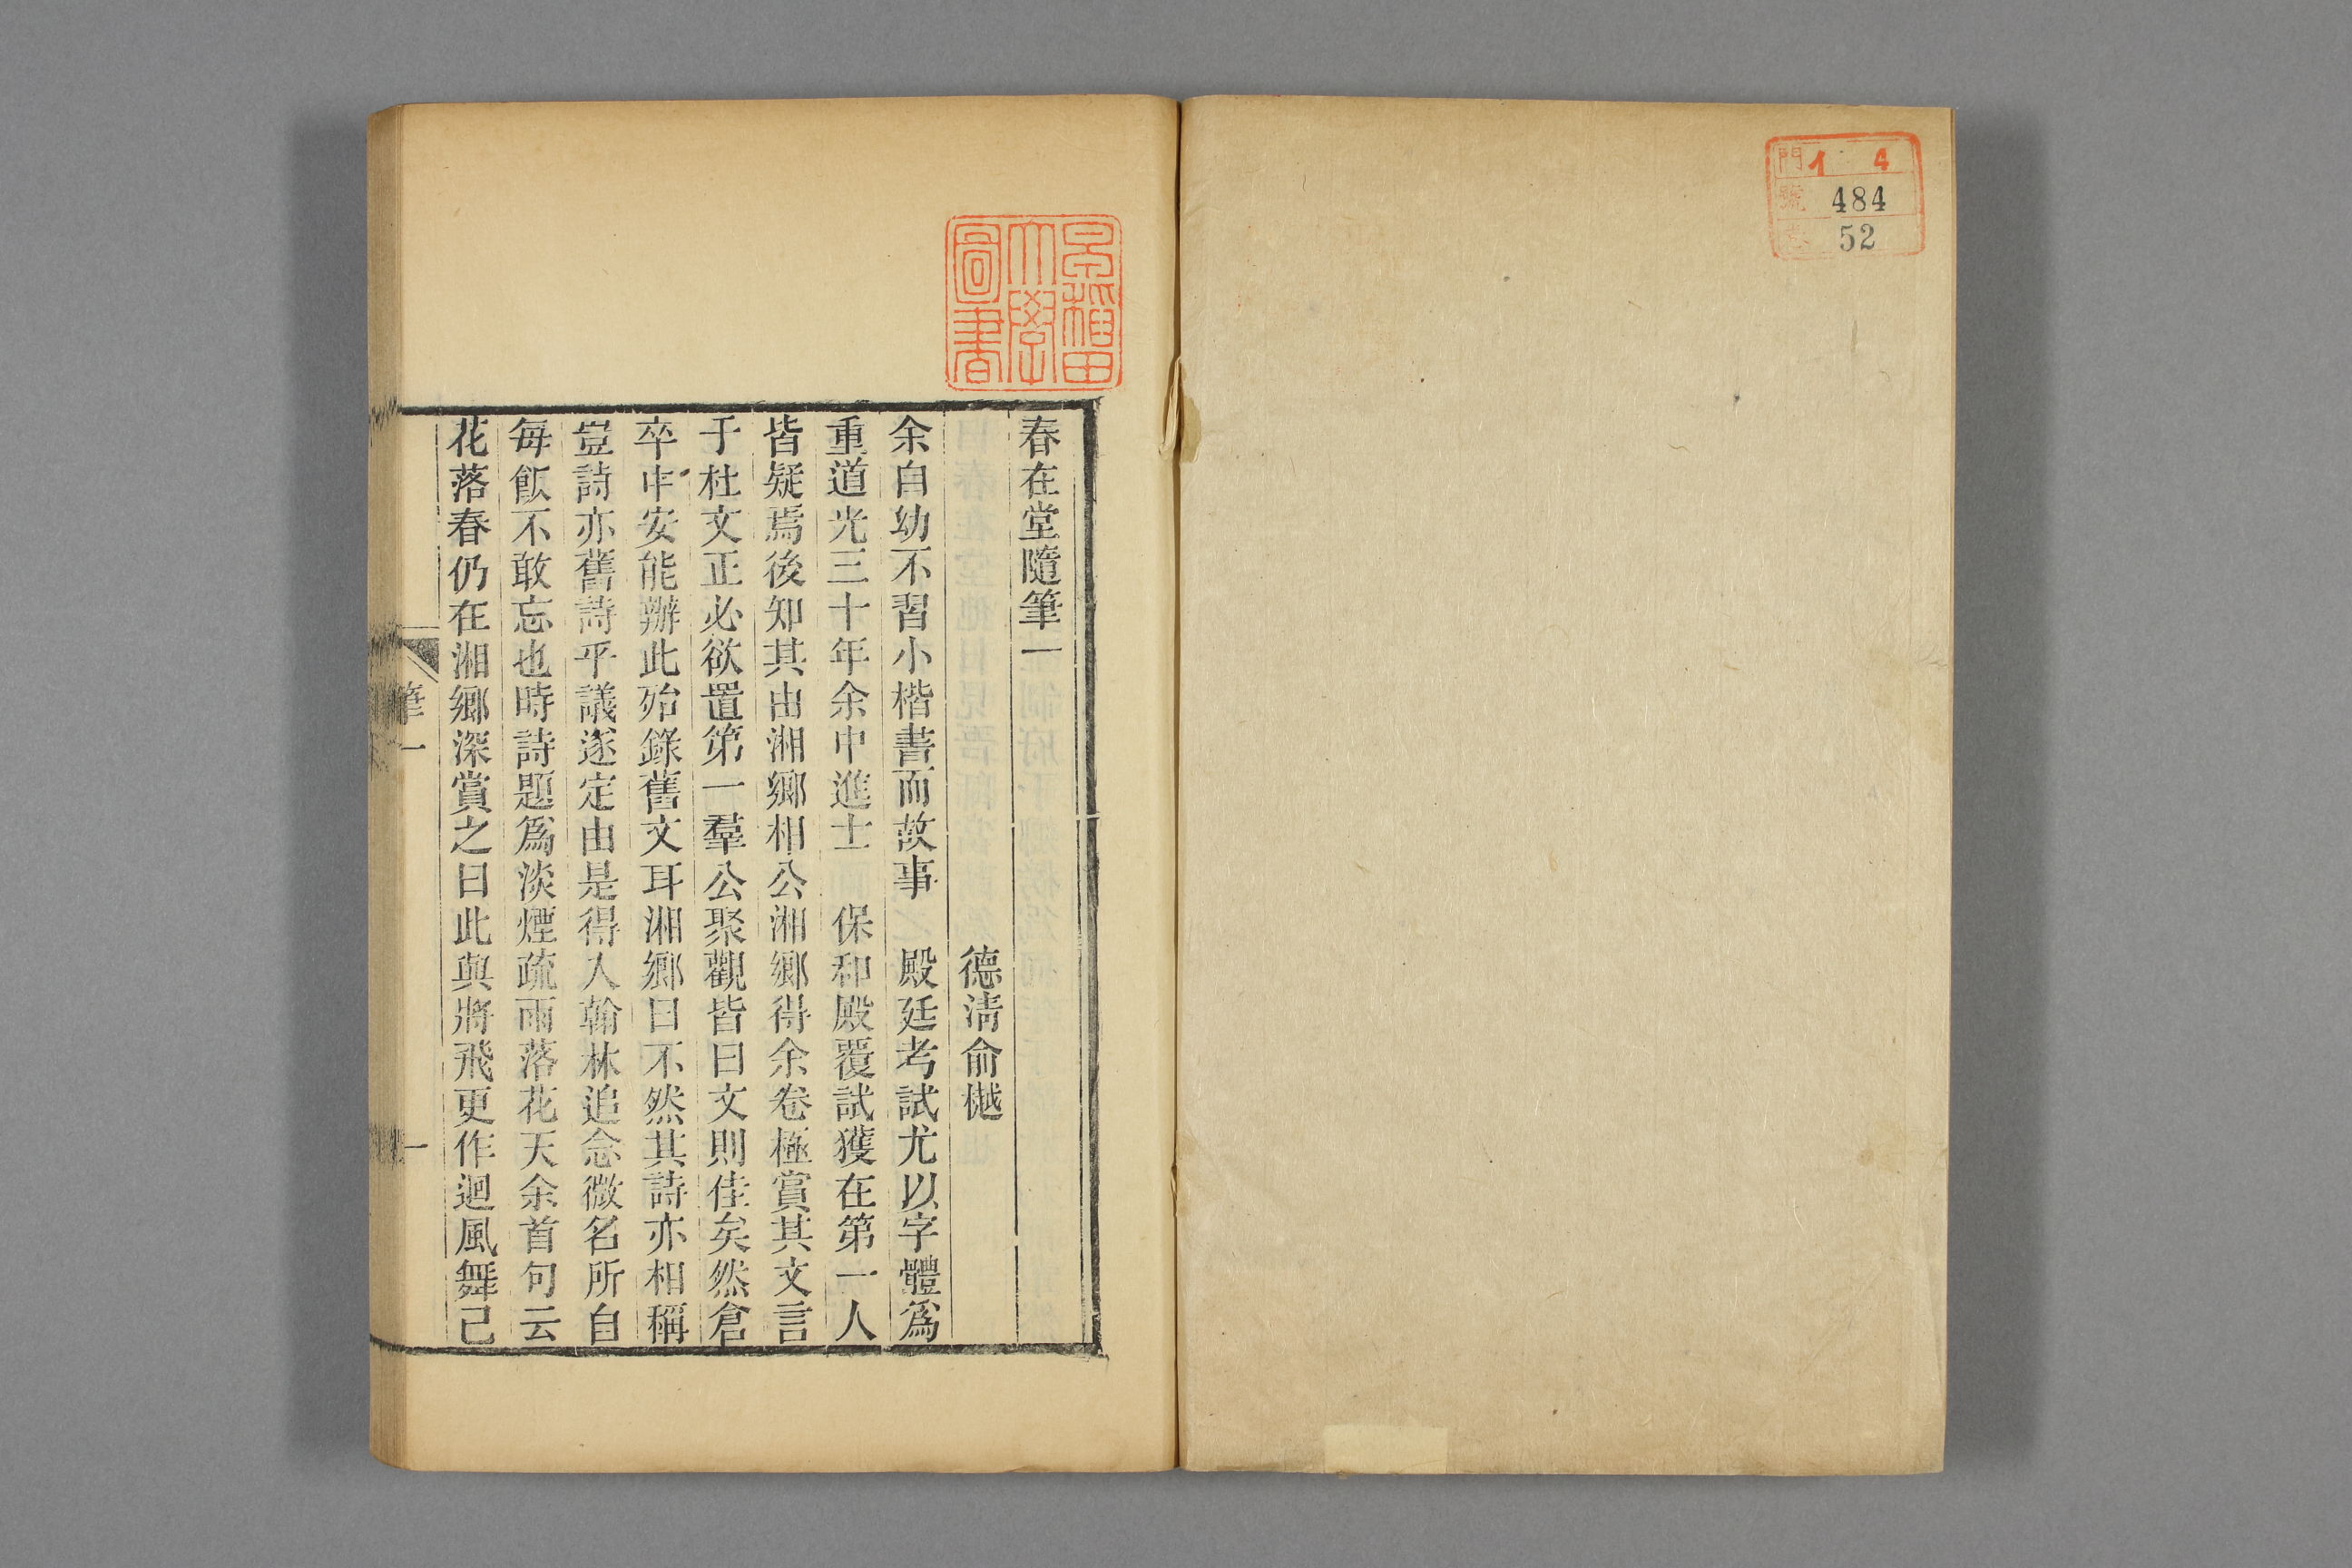 門 1 4
號 484
52
早稲田
大學
圖書
春在堂隨筆一
德清俞樾
余自幼不習小楷書而故事 殿廷考試尤以字體爲
重道光三十年余中進士 保和殿覆試獲在第一人
皆疑焉後知其由湘鄉相公湘鄉得余卷極賞其文言
于杜文正必欲置第一羣公聚觀皆曰文則佳矣然倉
卒中安能辦此殆錄舊文耳湘鄉曰不然其詩亦相稱
豈詩亦舊詩乎議遂定由是得入翰林追念微名所自
每飯不敢忘也時詩題爲淡煙疏雨落花天余首句云
花落春仍在湘鄉深賞之曰此與將飛更作迴風舞己
筆一
一